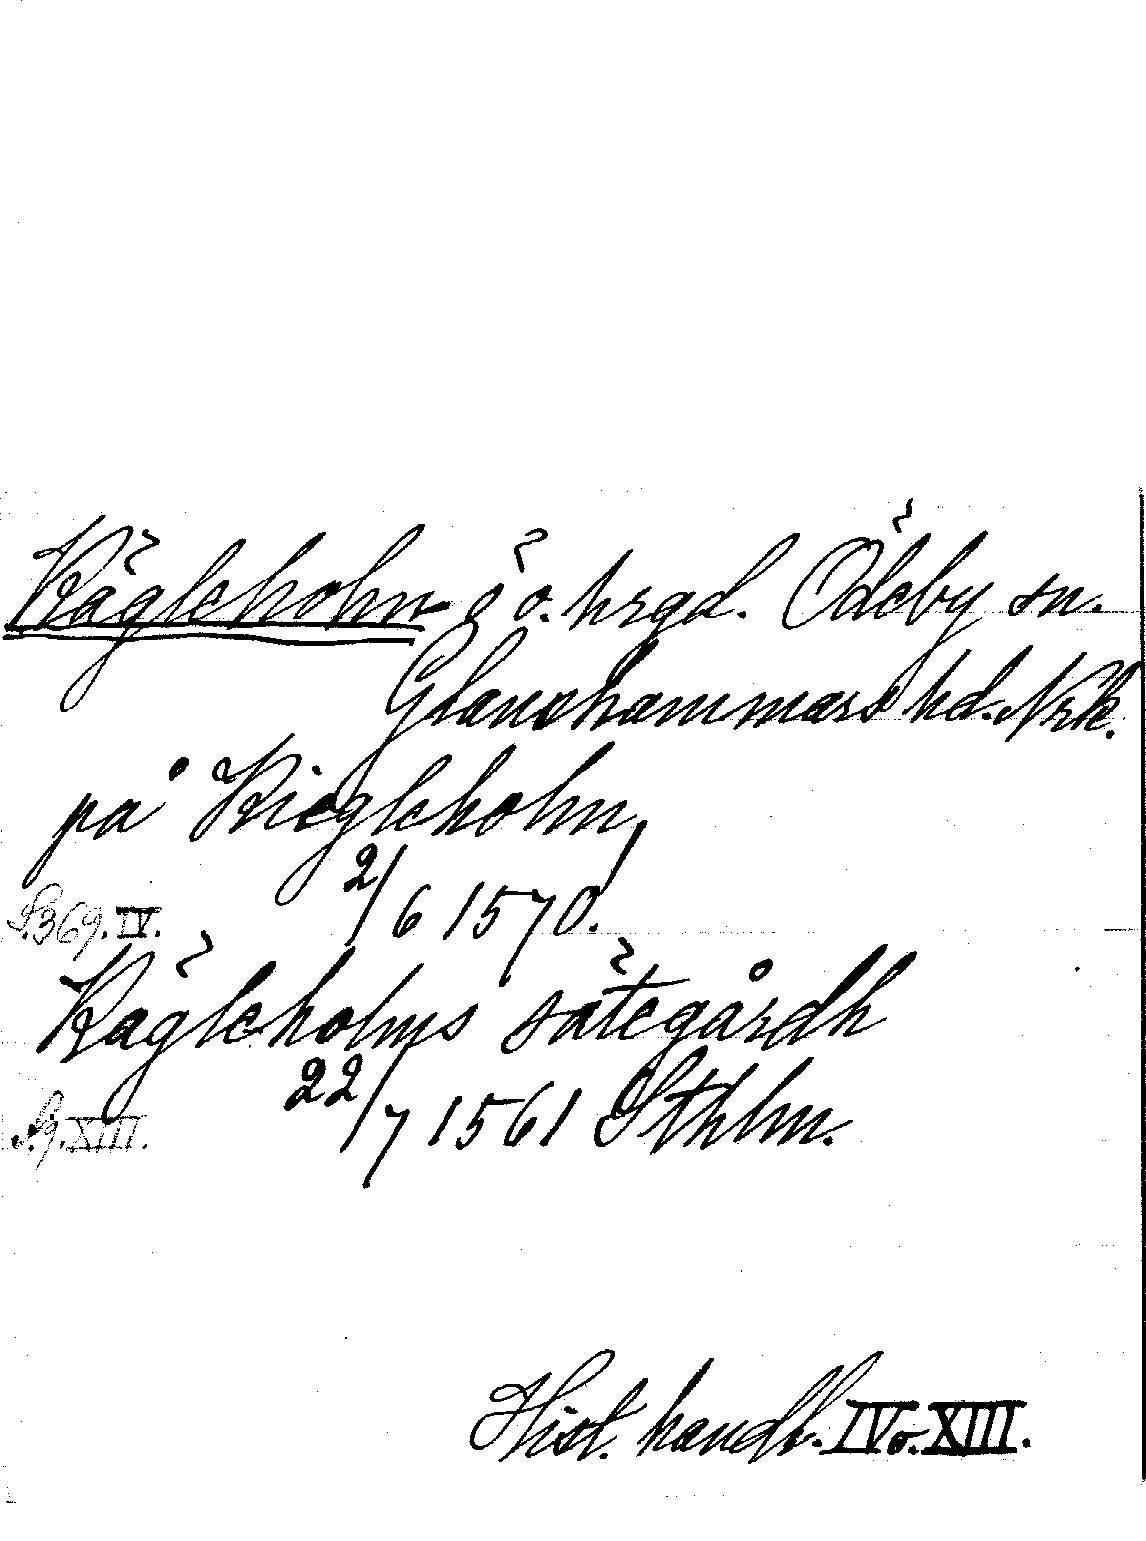 Kägleholm ö o. hrgd. Ödeby sn.
Glanshammars hd. Nrk.
på Kiegleholm,
2/6 1570.
S. 369. IV.
Kägleholms sätegårdh
22/7 1561 Sthlm.
S. 9. XIII.
Hist. handl. IV o. XIII.